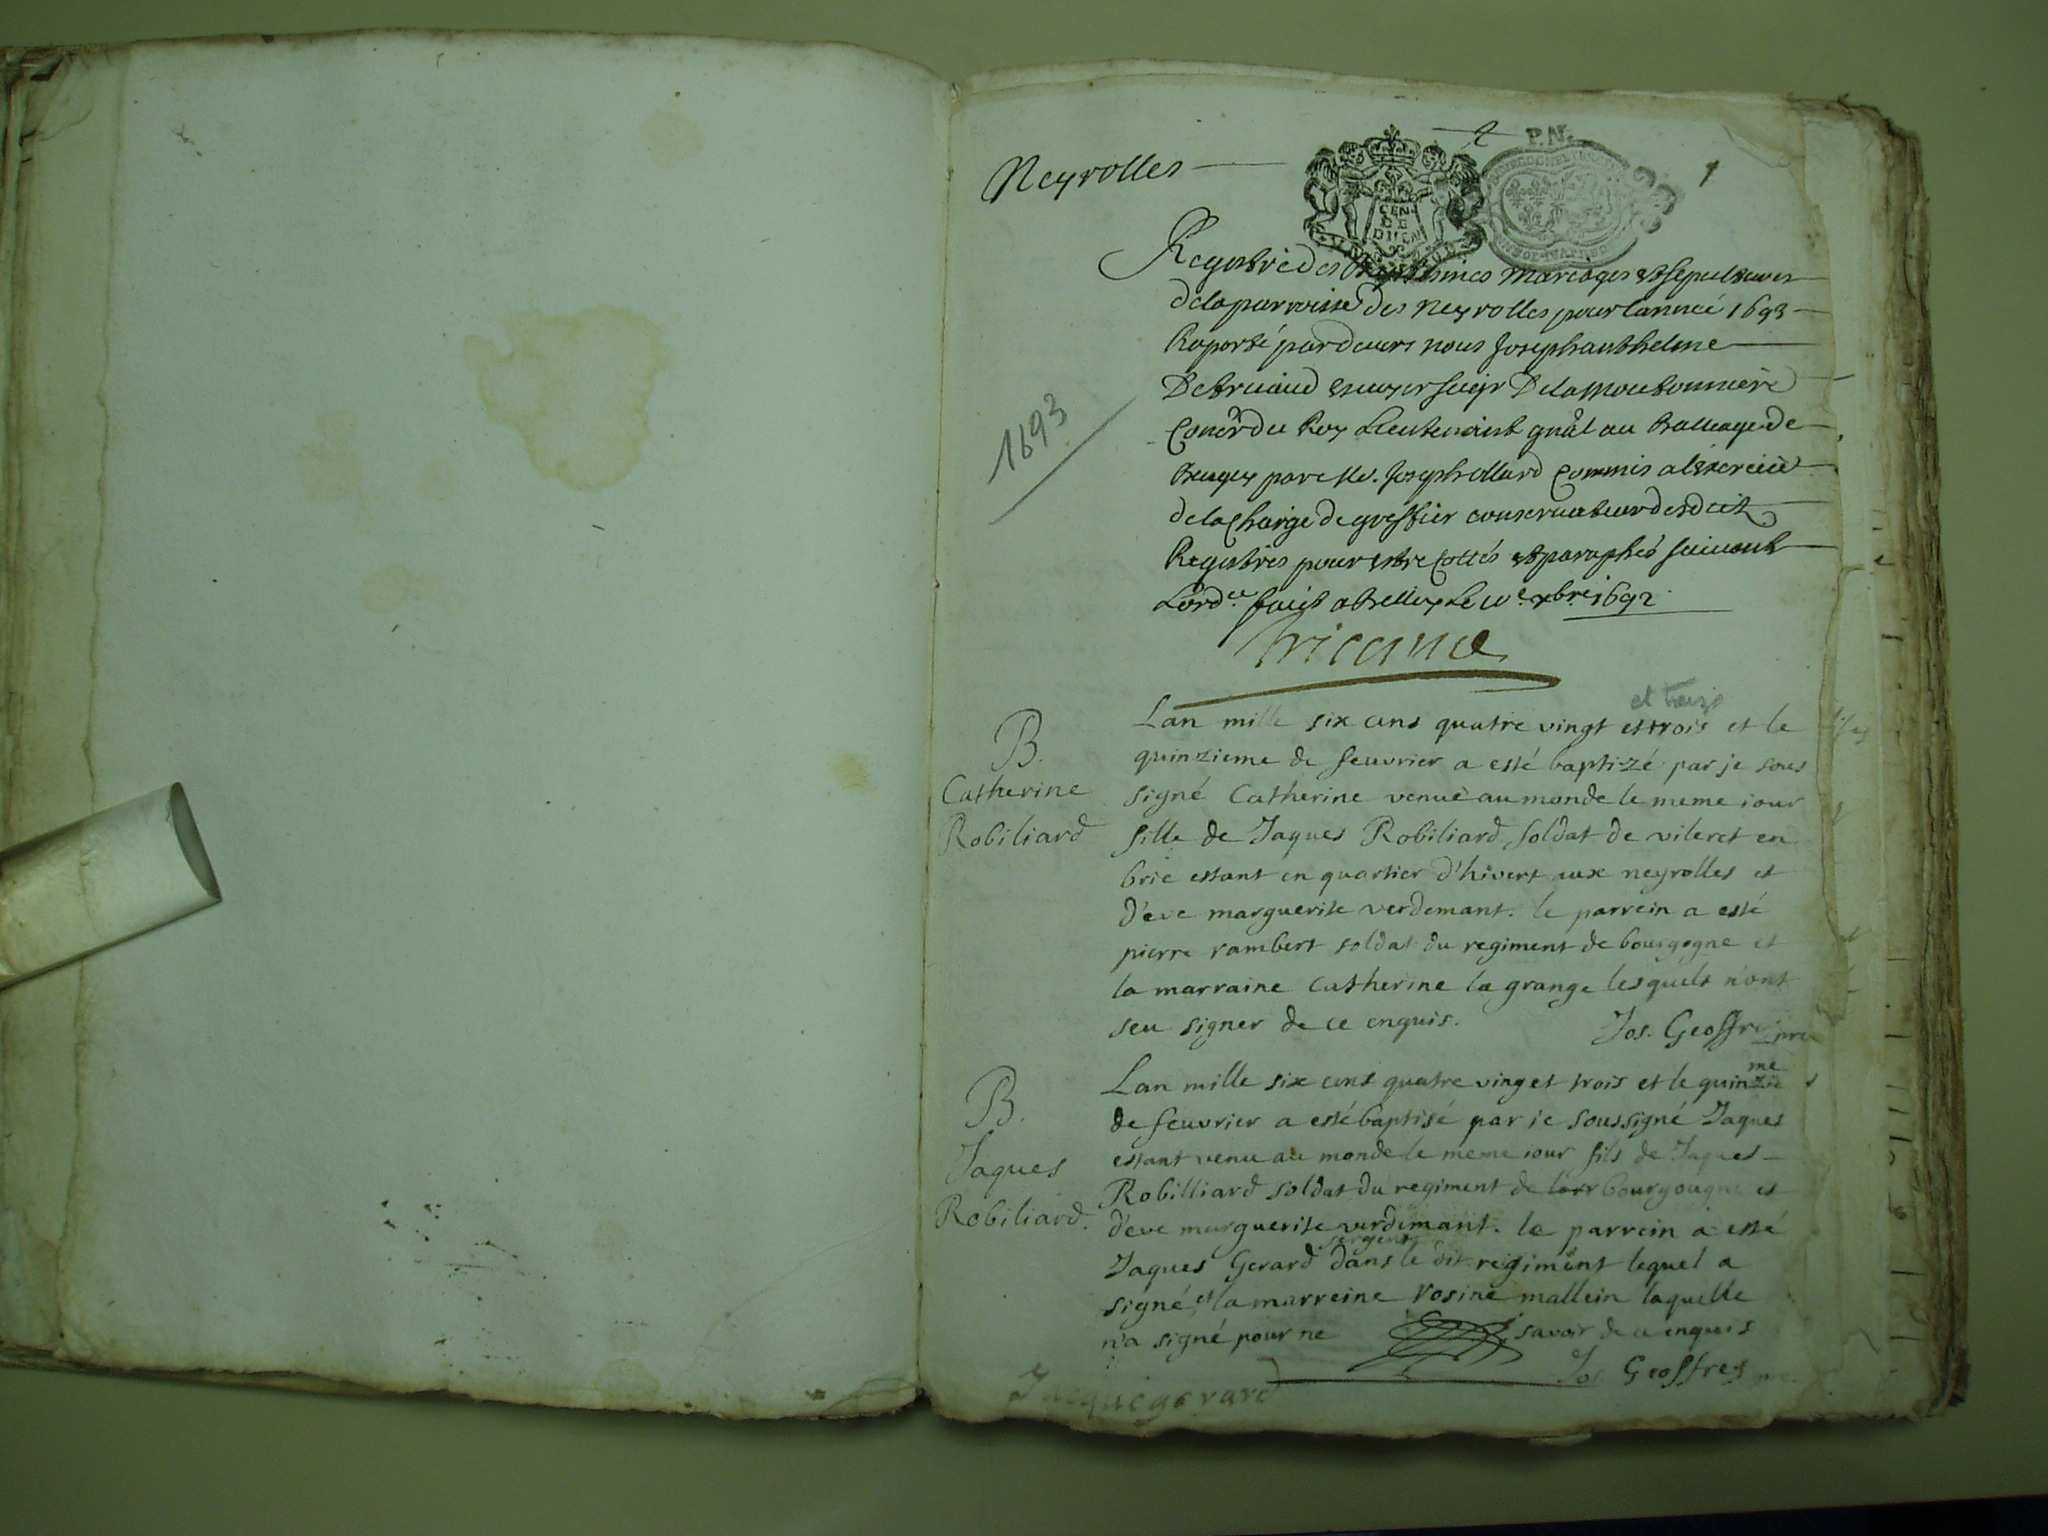 Neyrolles
P.N.
1
GEN
DE
DIJON
Registre des Baptesmes Mariages et sepultures
de la parroisse des Neyrolles pour lannée 1693
Raporté pardevers nous Joseph anthelme
De Seigr De la
Conser du Roy Lieutenant gnâl au Balliage de
Beugey par Me. Joseph Ollard Commis a lexercice
de la Charge de greffier conservateur desdits
Registres pour estre Cottés et paraphés suivant
Lordce faict a Belley Le xbre 1692
Tricaud
1693
et treize
Lan mille six cens quatre vingt et trois et le
quinzieme de feuvrier a esté baptizé par je sous
signé Catherine venuë au monde le meme iour
fille de Jaques Robiliard soldat de vileret en
brie estant en quartier d'hivert aux neyrolles et
d'eve marguerite verdemant. le parrein a esté
pierre rambert soldat du regiment de bourgogne et
la marraine Catherine la grange lesquels n'ont
seu signer de ce enquis.
Jos. Geoffrey
B.
Catherine
Robiliard
Lan mille six cens quatre vinget trois et le quinzie
me
de feuvrier a esté baptisé par ie soussigné Jaques
estant venu au monde le meme iour fils de Jaques
Robilliard soldat du regiment de bourgougne et
d'eve marguerite verdemant. le parrein a esté
sergent
Jaques Gerard dans le dit regiment lequel a
signé et la marreine rosine mallein laquelle
n'a signé pour ne savoir de ce enquis
Jos Geoffrey
B.
Jaques
Robiliard.
Jacque gerard